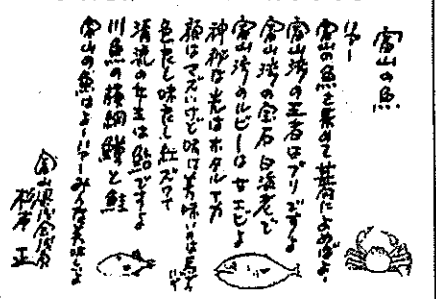 富山の魚
富山の魚を集めて芸術によめばよ
富山湾の王者はブリですよ
富山湾の宝石白海老で
富山湾のルビーは甘エビよ
神秘な光はホタルイカ
顔はマズいけど味は美味い
色だも味だも紅ズワイ
清流の女王は鮎ですよ
川魚の横綱鱒と鮭
富山の魚はよーハァーみんな美味いよ
正